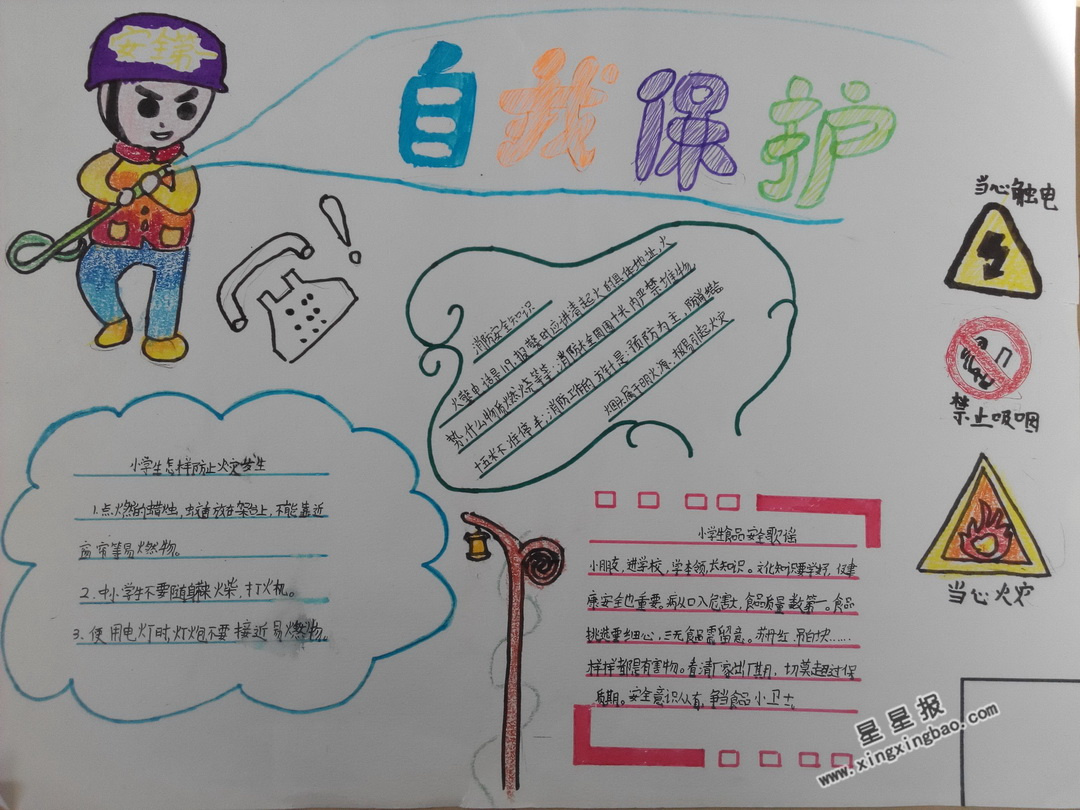 安全第一
自我保护
当心触电
禁止吸咽
当心火灾
消防安全知识
火警电话是119，报警时应讲清起火的具体地址，火
势，什么物质燃烧等等；消防栓周围十米内严禁堆物
十五米不准停车；消防工作的方针是：预防为主，防消结合
烟头属于明火源，极易引起火灾
小学生怎样防止火灾发生
1.点燃的蜡烛，蚊香放在架台上，不能靠近
窗帘等易燃物。
2.中小学生不要随身带火柴，打火机。
3.使用电灯时灯炮不要接近易燃物。
小学生食品安全歌谣
小朋友，进学校，学本领，长知识。文化知识要学好，健
康安全也重要。病从口入危害大，食品质量数第一。食品
挑选要细心，三无食品需留意。苏丹红 吊白块……
样样都是有害物。看清厂家出厂期，切莫超过保
质期。安全意识从有，争当食品小卫士。
星星报
www.xingxingbao.com